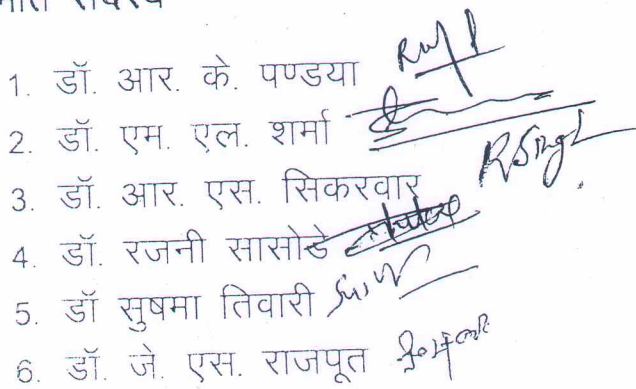 1. डॉ. आर. के. पण्डया
2. डॉ. एम. एल. शर्मा
3. डॉ. आर. एस. सिकरवार RSingh
4. डॉ. रजनी सासोडे
5. डॉ सुषमा तिवारी
6. डॉ. जे. एस. राजपूत